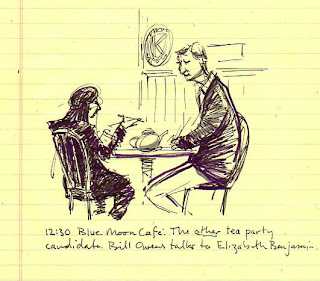 K
12:30 Blue Moon Café: The other tea party
candidate. Bill Owens talks to Elizabeth Benjamin.